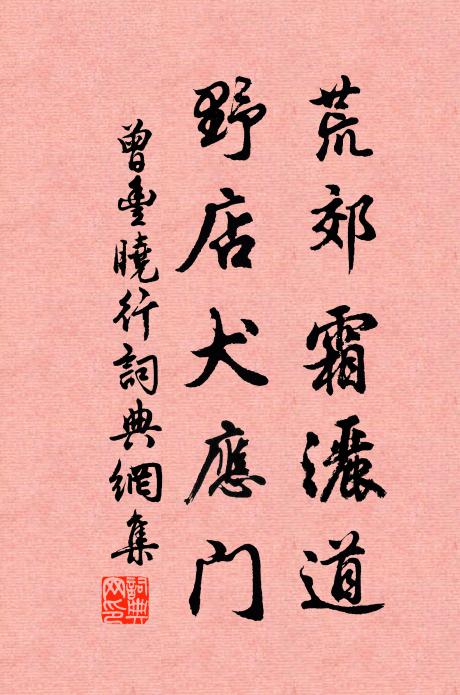 荒郊霜灑道
野店犬應门
曾豐曉行詞典網集
詞典网印